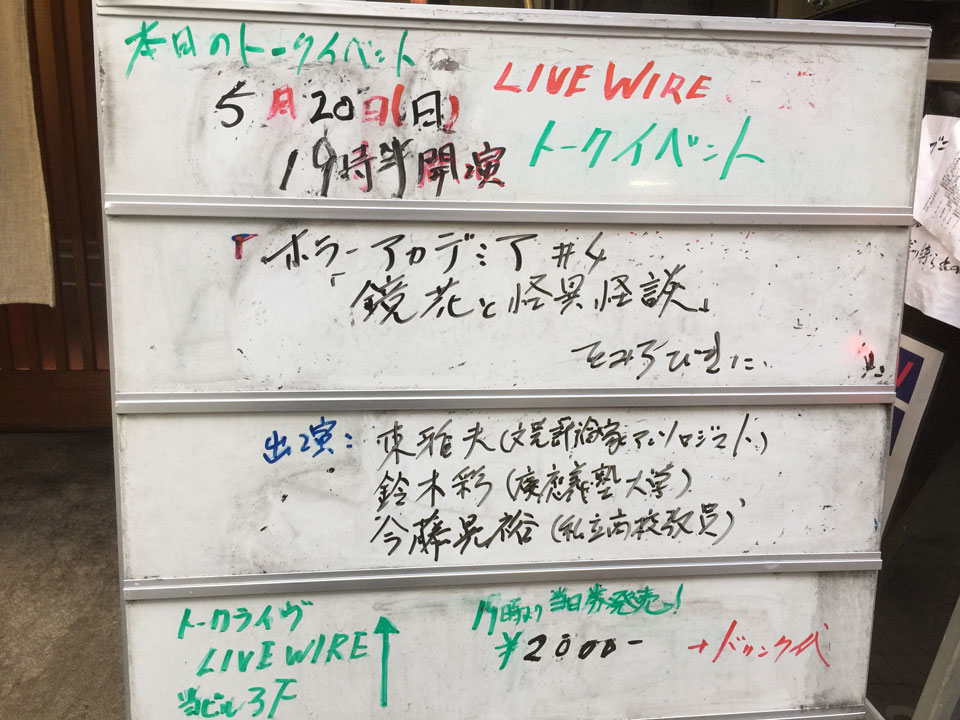 本日のトークイベント
LIVE WIRE
5月20日(日)
19時半開演
トークイベント
『ホラーアカデミア #4
「鏡花と怪異怪談」
出演:
東雅夫(文芸評論家アンソロジスト)
鈴木彩(慶應義塾大学)
今藤晃裕(私立高校教員)
トークライヴ
LIVE WIRE
当ビル3F
↑
17時より当日券発売!
¥2000-
+ドリンク代